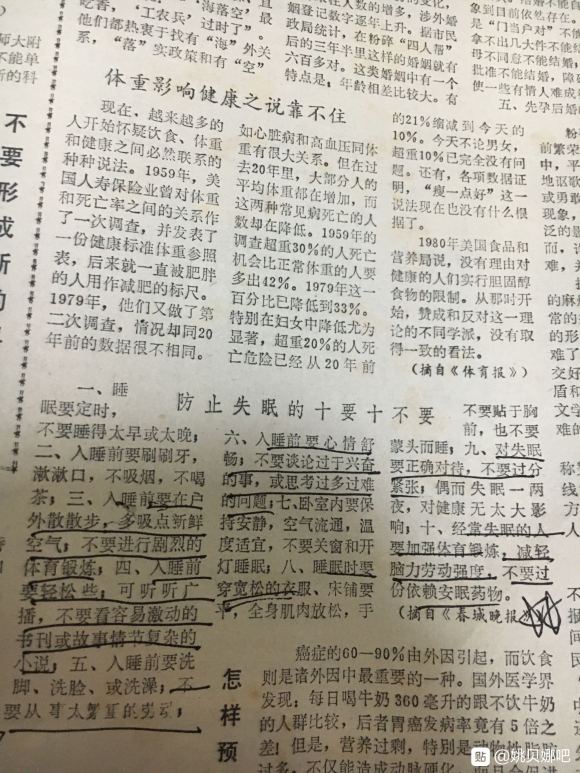 师大附
不能单
新的科
不要形成新的
他们都热衷于找有“海”外关
系，“落”实政策和有“空”
姻登记数字逐年上升。据市民
政局统计，在粉碎“四人帮”
后的三年半里这样的婚姻就有
六百多对。这类婚姻中有一个
特点是：年龄相差比较大。有
象到目前依然存在。
是“门当户对”不能
拿不出几大件不能结
母不同意不能结婚，
批准不能结婚，障
使一些有情人难成
五、先孕后婚
体重影响健康之说靠不住
现在，越来越多的
人开始怀疑饮食、体重
和健康之间必然联系的
种种说法。1959年，美
国人寿保险业曾对体重
和死亡率之间的关系作
了一次调查，并发表了
一份健康标准体重参照
表，后来就一直被肥胖
的人用作减肥的标尺。
1979年，他们又做了第
二次调查，情况却同20
年前的数据很不相同。
如心脏病和高血压同体
重有很大关系。但在过
去20年里，大部分人的
平均体重都在增加，而
这两种常见病死亡的人
数却在降低。1959年的
调查超重30%的人死亡
机会比正常体重的人要
多出42%。1979年这一
百分比已降低到33%。
特别在妇女中降低尤为
显著，超重20%的人死
亡危险已经从20年前
的21%缩减到今天的
10%。今天不论男女，
超重10%已完全没有问
题。还有，各项数据证
明，“瘦一点好”这一
说法现在也没有什么根
据了。
1980年美国食品和
营养局说，没有理由对
健康的人们实行胆固醇
食物的限制。从那时开
始，赞成和反对这一理
论的不同学派，没有取
得一致的看法。
(摘自《体育报》)
防止失眠的十要十不要
一、睡
眠要定时，
不要睡得太早或太晚；
二、入睡前要刷刷牙，
漱漱口，不吸烟，不喝
茶；三、入睡前要在户
外散散步，多吸点新鲜
空气；不要进行剧烈的
体育锻炼；四、入睡前
要轻松些；可听听广
播，不要看容易激动的
书刊或故事情节复杂的
小说；五、入睡前要洗
脚、洗脸、或洗澡；不
要从事太繁重的劳动；
六、入睡前要心情舒
畅；不要谈论过于兴奋
的事，或思考过多过难
的问题；七、卧室内要保
持安静，空气流通，温
度适宜，不要关窗和开
灯睡眠；八、睡眠时要
穿宽松的衣服、床铺要
平，全身肌肉放松，手
不要贴于胸
前，也不要
蒙头而睡；九、对失眠
要正确对待，不要过分
紧张；偶而失眠一两
夜，对健康无太大影
响；十、经常失眠的人
要加强体育锻炼，减轻
脑力劳动强度，不要过
份依赖安眠药物。
(摘自《春城晚报》)
怎样预
癌症的60—90%由外因引起，而饮食
则是诸外因中最重要的一种。国外医学界
发现：每日喝牛奶360毫升的跟不饮牛奶
的人群比较，后者胃癌发病率竟有5倍之
差！但是，营养过剩，特别是动物性脂肪
过多，不仅能造成动脉硬化，
贴 @姚贝娜吧